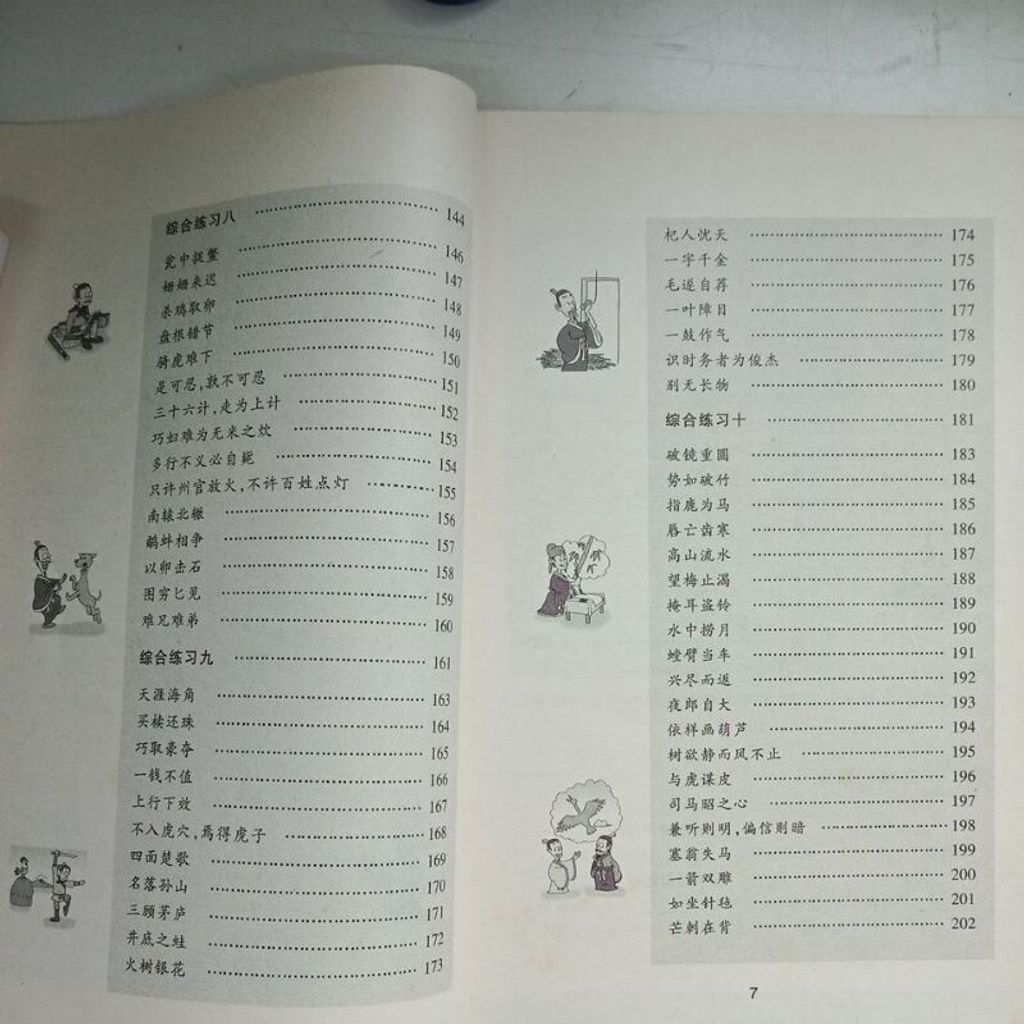 综合练习八 ……………… 144
瓮中捉鳖 ……………… 146
姗姗来迟 ……………… 147
杀鸡取卵 ……………… 148
盘根错节 ……………… 149
骑虎难下 ……………… 150
是可忍,孰不可忍 ……………… 151
三十六计,走为上计 ……………… 152
巧妇难为无米之炊 ……………… 153
多行不义必自毙 ……………… 154
只许州官放火,不许百姓点灯 ……………… 155
南辕北辙 ……………… 156
鹬蚌相争 ……………… 157
以卵击石 ……………… 158
图穷匕见 ……………… 159
难兄难弟 ……………… 160
综合练习九 ……………… 161
天涯海角 ……………… 163
买椟还珠 ……………… 164
巧取豪夺 ……………… 165
一钱不值 ……………… 166
上行下效 ……………… 167
不入虎穴,焉得虎子 ……………… 168
四面楚歌 ……………… 169
名落孙山 ……………… 170
三顾茅庐 ……………… 171
井底之蛙 ……………… 172
火树银花 ……………… 173
杞人忧天 ……………… 174
一字千金 ……………… 175
毛遂自荐 ……………… 176
一叶障目 ……………… 177
一鼓作气 ……………… 178
识时务者为俊杰 ……………… 179
别无长物 ……………… 180
综合练习十 ……………… 181
破镜重圆 ……………… 183
势如破竹 ……………… 184
指鹿为马 ……………… 185
唇亡齿寒 ……………… 186
高山流水 ……………… 187
望梅止渴 ……………… 188
掩耳盗铃 ……………… 189
水中捞月 ……………… 190
螳臂当车 ……………… 191
兴尽而返 ……………… 192
夜郎自大 ……………… 193
依样画葫芦 ……………… 194
树欲静而风不止 ……………… 195
与虎谋皮 ……………… 196
司马昭之心 ……………… 197
兼听则明,偏信则暗 ……………… 198
塞翁失马 ……………… 199
一箭双雕 ……………… 200
如坐针毡 ……………… 201
芒刺在背 ……………… 202
7